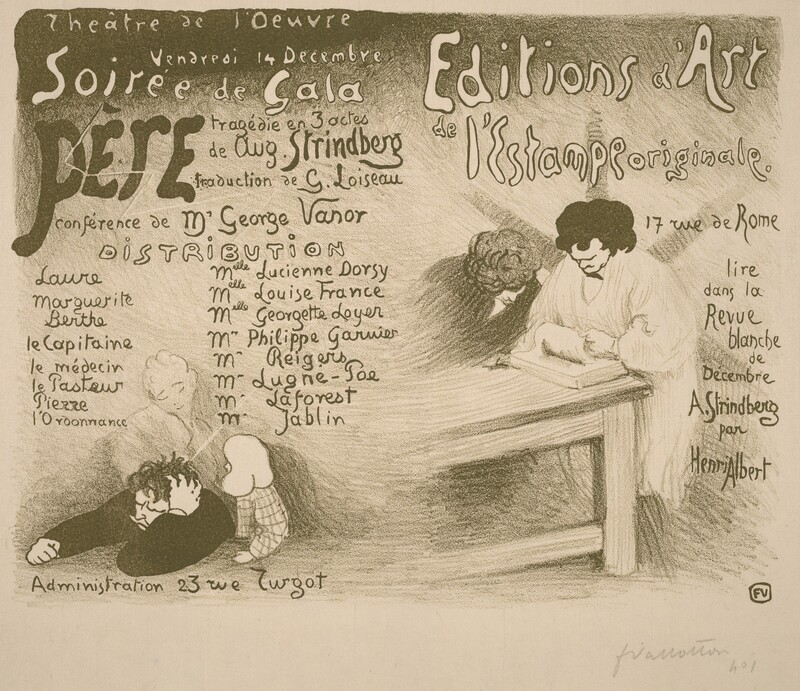 Théâtre de l'Oeuvre
Vendredi 14 Décembre
Soirée de Gala
PÈRE
tragédie en 3 actes
de Aug. Strindberg
traduction de G. Loiseau
conférence de Mr George Vanor
DISTRIBUTION
Laure Melle Lucienne Dorsy
Marguerite Melle Louise France
Berthe Melle Georgette Loyer
le Capitaine Mr Philippe Garnier
le médecin Mr Reigers
le Pasteur Mr Lugné-Poe
Pierre Mr Laforest
l'Ordonnance Mr Jablin
Administration 23 rue Turgot
Editions d'Art
de l'Estampe originale.
17 rue de Rome
lire
dans la
Revue
blanche
de
Décembre
A. Strindberg
par
Henri Albert
FV
f Vallotton